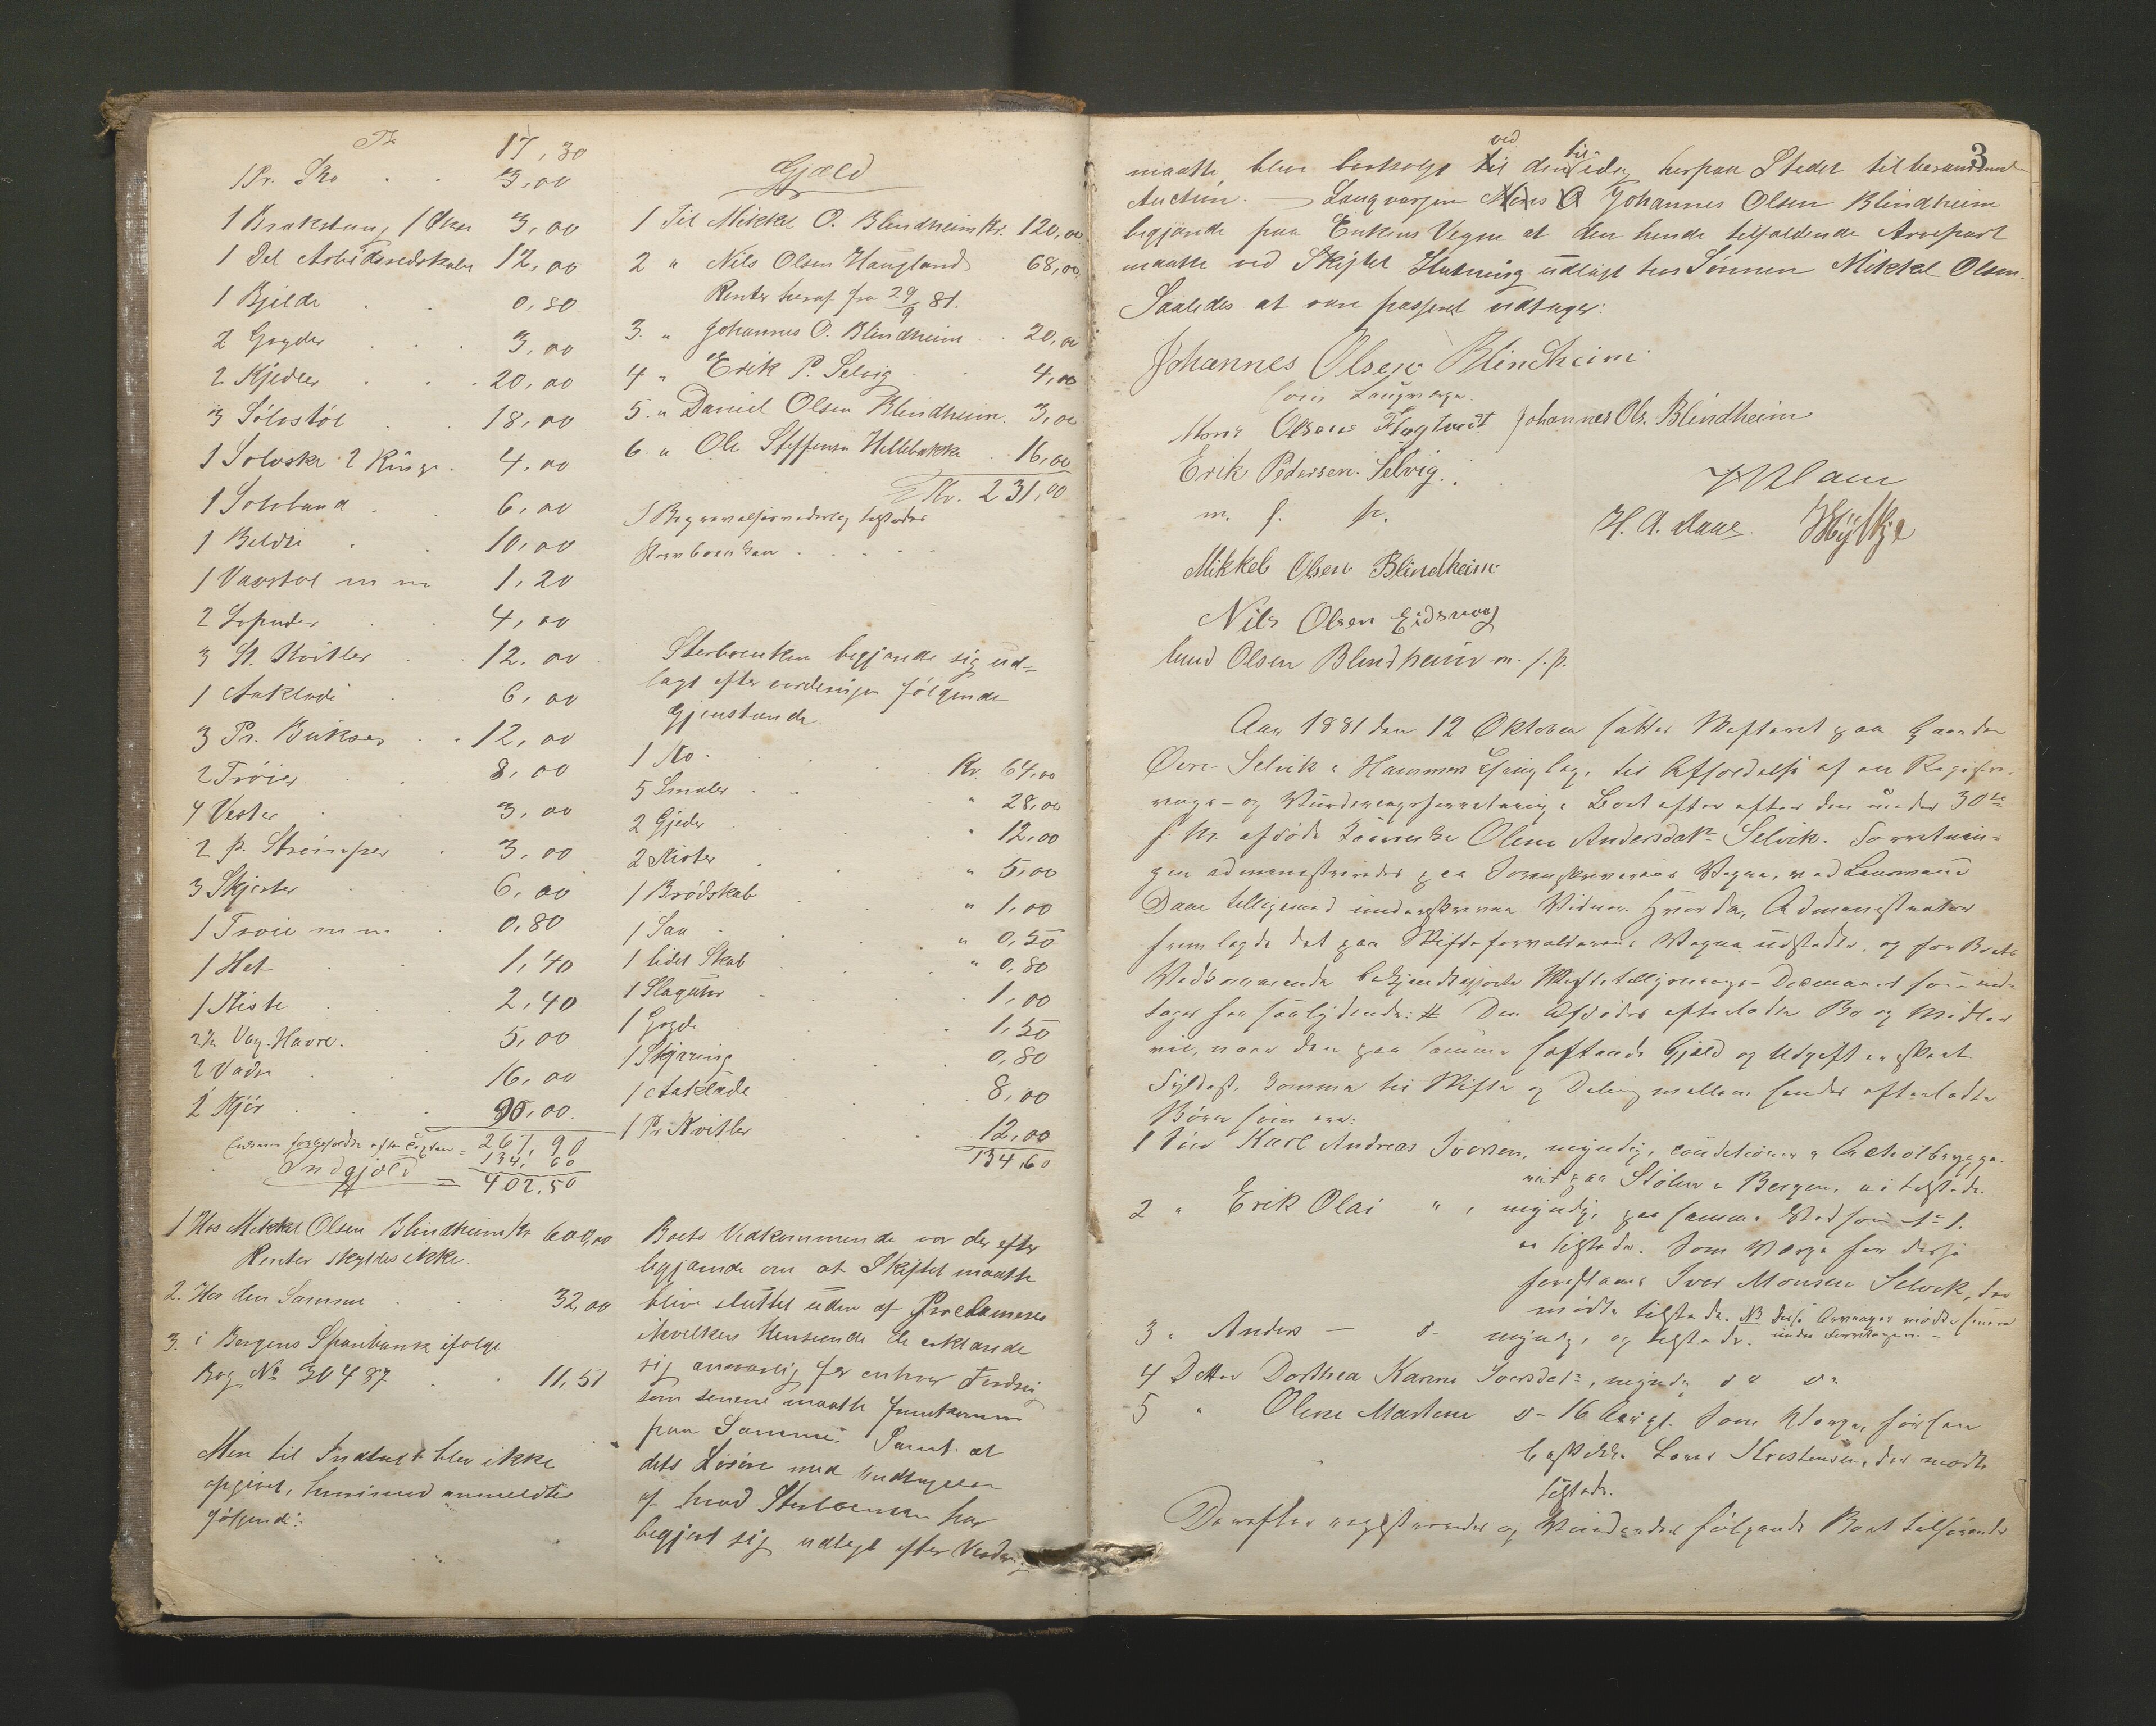 Tr. 17,30
1 Pr. Sko . . 3,00
1 Brækstang 1 Øxe 3,00
1 Del Arbeidsredskaber 12,00
1 Bjelde . . 0,80
2 Gryder . . . 3,00
2 Kjedler . . . 20,00
3 Sølvstøl . . 18,00
1 Sølvske 2 Ringe . 4,00
1 Sølvband . 6,00
1 . 10,00
1 Vævstol m m 1,20
2 . 4,00
3 St. Kvitler . . 12,00
1 Aaklæde . 6,00
3 Pr. Bukser . . 12,00
2 Trøier . 8,00
4 Vester . 3,00
2 p. Strømper . 3,00
3 Skjorter . . 6,00
1 Troie m m . 0,80
1 Hat . . 1,40
1 Kiste . 2,40
2½ Vog. Havre . . 5,00
2 . 16,00
2 Kjör . . . 90,00
= 267,90
134,60
Indgjæld = 402.50
1 Hos Mikkel Olsen Blindheim Kr 600,00
Renter skyldes ikke.
2. Hos den Samme . . . 32,00
3. i Bergens Sparebank ifølge
Bog No 30487 . . 11,51
Men til Indtægt blev ikke
opgivet, hvorimod anmeldtes
følgende:
Gjæld
1 Til Mikkel O. Blindheim Kr. 120,00
2 " Nils Olsen Haugland 68,00
Renter heraf fra 29/9 81.
3. " Johannes O. Blindheim . . 20,00
4 " Erik P. Selvig . . 4,00
5. " Daniel Olsen Blindheim . 3,00
6. " Ole Steffensen Hellebakke . 16,00
Kr. 231,00
. . . . .
Sterboenken begjærede sig ud=
lagt efter vurderingen følgende
Gjenstande.
1 Ko . . . . Kr. 64,00
5 Smaler . . " 28,00
2 Gjeder . . " 12,00
2 Kister . . " 5,00
1 Brödskab . " 1,00
1 Saa . . " 0,50
1 lidet Skab . . " 0,80
1 Slaguhr . . . 1,00
1 Gryde . . . 1,50
1 Skjæring . . 0,80
1 Aaklæde . . . 8,00
1 Pr Kvitler . . 12,00
134,60
Boets Vedkommende var der efter
begjærende om at Skiftet maatte
blive sluttet uden af Proclamens
i hvilken Henseende de erklærede
sig ansvarlig for enhver Fordring
som senere maatte fremkomme
paa Samme. Samt at
dets Løsøre med Undtagelse
af hvad Sterboenken har
begjært sig udlagt efter Vurdering
3
maatte blive bortsolgt ved den til idag herpaa Stedet til berammende
Auction. — Laugvergen Johannes Olsen Blindheim
begjærede paa Enkens Vegne at den hende tilfaldende Arvepart
maatte ved Skiftet Slutning udlagt hos Sønnen Mikkel Olsen.
Saaledes at være passeret vedtager:
Johannes Olsen Blindheim
som Laugverge.
Mons Olsen Flogtvedt Johannes Ols. Blindheim
Erik Pedersen Selvig.
m. f. p. H. A.
Mikkel Olsen Blindheim
Nils Olsen Eidsvaag
Knud Olsen Blindheim m. f. p.
Aar 1881 den 12 Oktober sattes Skifteret paa Gaarden
Øvre-Selvik i Hammers Thinglag, til Afholdelse af en Registre-
rings- og Vurderingsforretning i Boet efter efter den under 30te
f. M. afdøde Kaarenke Olene Andersdatr Selvik. Forretnin-
gen administreredes paa Sorenskriverens Vegne, ved Lensmand
Dane tilligemed underskrevne Vidner. Hvorda, Administrator
fremlagde det paa Skifteforvalterens Vegne udstedte, og for Boets
Vedkommende bekjendtgjorte Skiftetillysnings-Document som ind-
tages her saalydende: # Den Afdødes efterladte Bo og Midler
vil, naar den paa samme heftende Gjæld og Udgift er skeet
Fyldest, komme til Skifte og Deling mellem hendes efterladte
Børn som ere:
1 Søn Karl Andreas Iversen, myndig, conditionerer i
paa Stølen i Bergen, ei tilstede.
2 " Erik Olai " , myndig, paa samme Sted som No 1.
ei tilstede. Som Verge for disse
foreslaaes Iver Monsen Selvik, der
mødte tilstede. NB disse Arvinger mødte senere
under Forretningen. —
3 " Anders — d- myndig, og tilstede.
4 Datter Dorthea Karine Iversdatr, myndig d " d "
5 " Olene Martine d- 16 Aar gl. Som Verge for hende
beskikkes Lars Kristensen, der mødte
tilstede.
Derefter registreredes og Vurderedes følgende Boet tilhørende